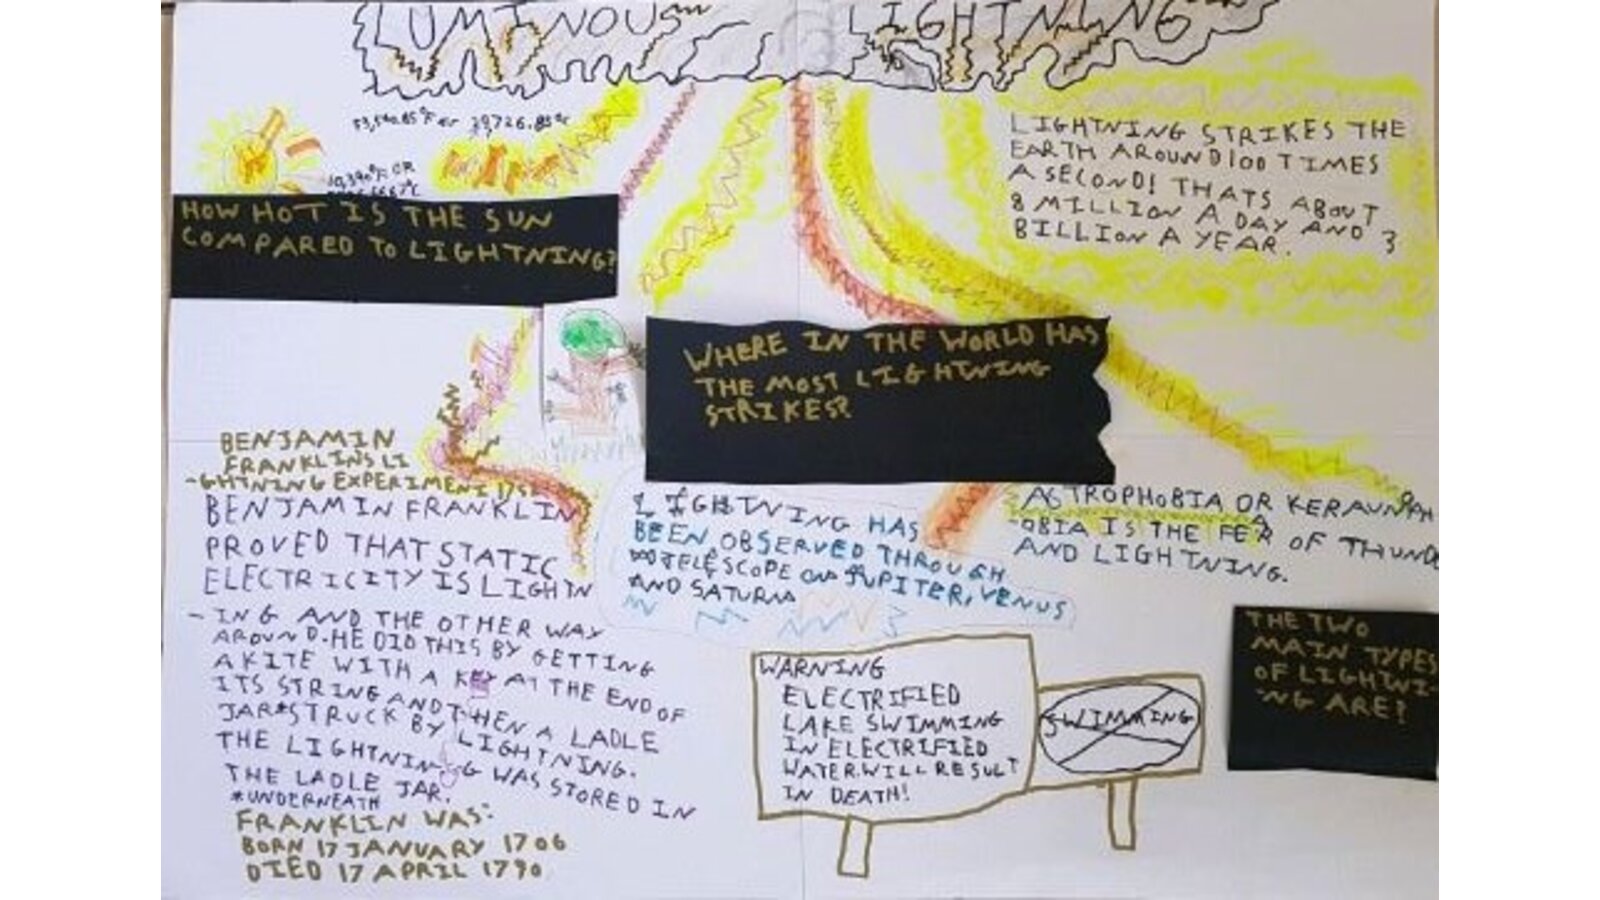 LUMINOUS LIGHTNING
53,540.85°F or 29726.85°C
°F OR
HOW HOT IS THE SUN
COMPARED TO LIGHTNING?
LIGHTNING STRIKES THE
EARTH AROUND 100 TIMES
A SECOND! THATS ABOUT
8 MILLION A DAY AND 3
BILLION A YEAR.
WHERE IN THE WORLD HAS
THE MOST LIGHTNING
STRIKES?
BENJAMIN
FRANKLINS LI
-GHTNING EXPERIMENT 1752
BENJAMIN FRANKLIN
PROVED THAT STATIC
ELECTRICITY IS LIGHTN
-ING AND THE OTHER WAY
AROUND. HE DID THIS BY GETTING
A KITE WITH A KEY AT THE END OF
ITS STRING AND THEN A LADLE
JAR* STRUCK BY LIGHTNING.
THE LIGHTNING WAS STORED IN
THE LADLE JAR.
*UNDERNEATH
FRANKLIN WAS:
BORN 17 JANUARY 1706
DIED 17 APRIL 1790
LIGHTNING HAS
BEEN OBSERVED THROUGH
TELESCOPE ON JUPITER, VENUS
AND SATURN
ASTROPHOBIA OR KERAUNOPH
-OBIA IS THE FEAR OF THUND
AND LIGHTNING.
WARNING
ELECTRIFIED
LAKE SWIMMING
IN ELECTRIFIED
WATER WILL RESULT
IN DEATH!
SWIMMING
THE TWO
MAIN TYPES
OF LIGHTNI-
-NG ARE?